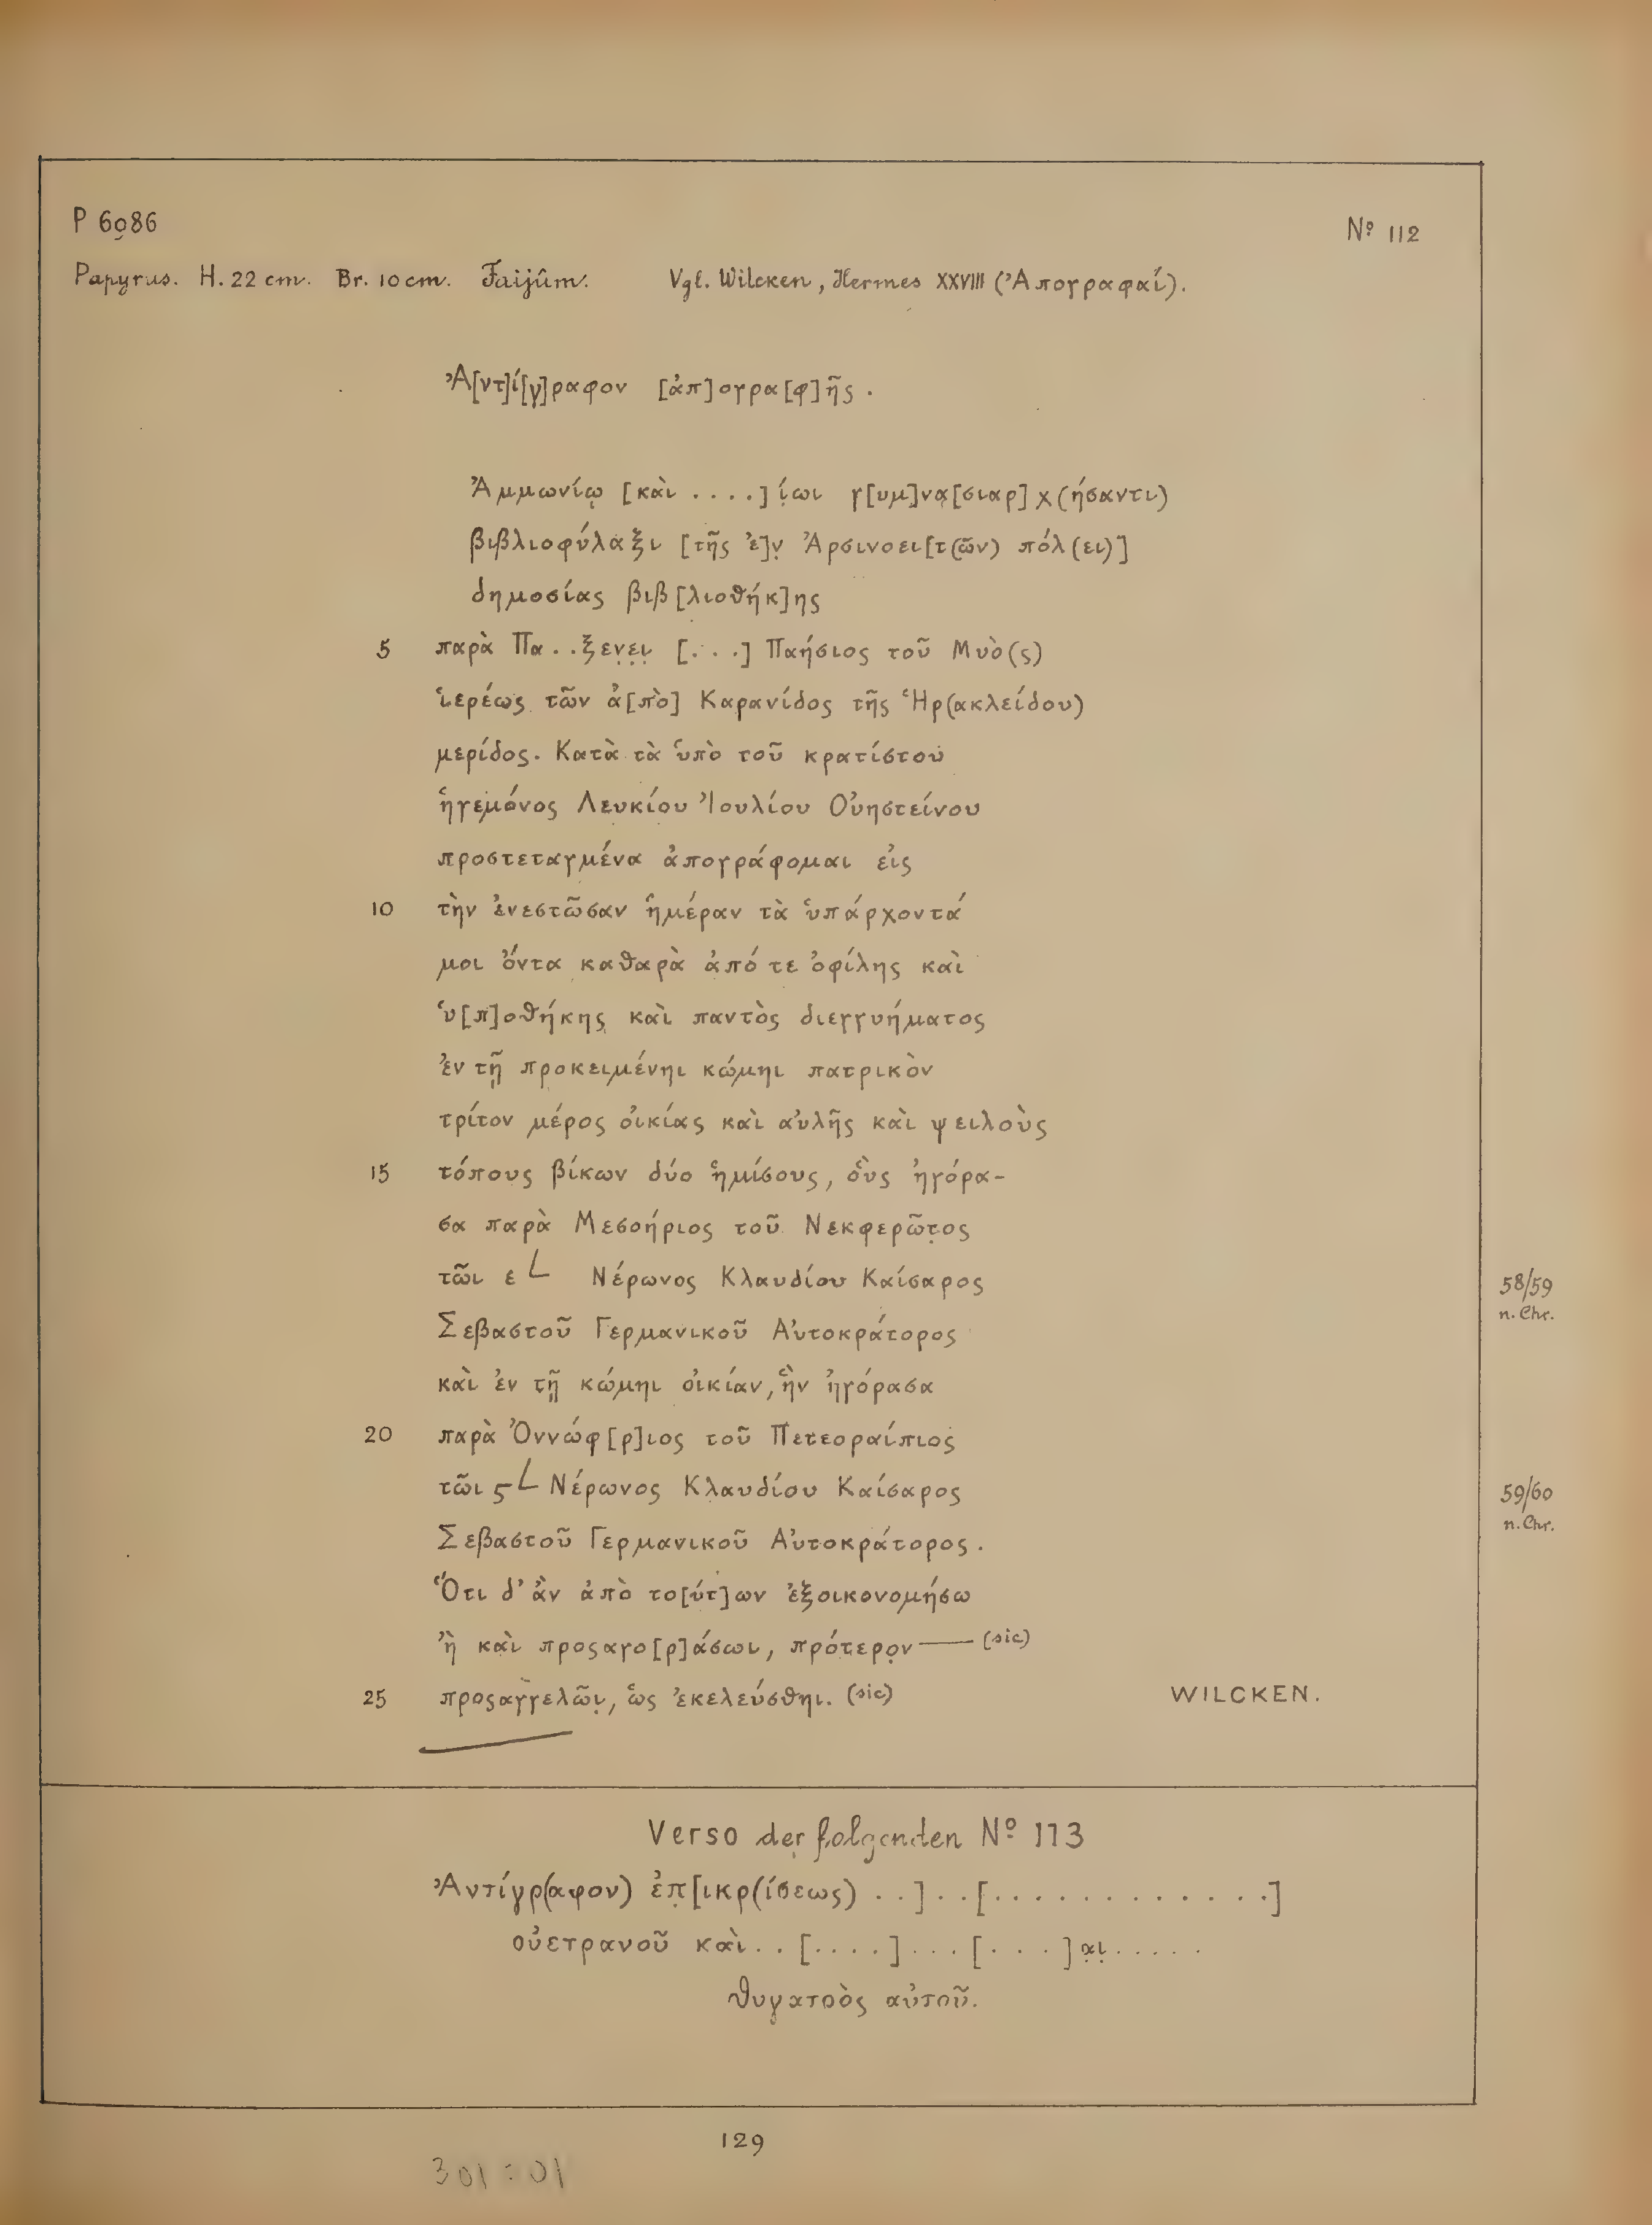 P 6086
Nº 112
Papyrus. H. 22 cm. Br. 10 cm. Faijûm. Vgl. Wilcken, Hermes XXVIII (Ἀπογραφαί).
Ἀ[ντ]ί[γ]ραφον [ἀπ]ογρα[φ]ῆς.
Ἀμμωνίῳ [καὶ ....]ίωι γ[υμ]να[σιαρ]χ(ήσαντι)
βιβλιοφύλαξι [τῆς ἐ]ν̣ Ἀρσινοει[τ(ῶν) πόλ(ει)]
δημοσίας βιβ[λιοθήκ]ης
5 παρὰ Πα..ξεν̣ε̣ι̣ [...] Παήσιος τοῦ Μυὸ(ς)
ἱερέως τῶν ἀ[πὸ] Καρανίδος τῆς Ἡρ(ακλείδου)
μερίδος. Κατὰ τὰ ὑπὸ τοῦ κρατίστου
ἡγεμόνος Λευκίου Ἰουλίου Οὐηστείνου
προστεταγμένα ἀπογράφομαι εἰς
10 τὴν ἐνεστῶσαν ἡμέραν τὰ ὑπάρχοντά
μοι ὄντα καθαρὰ ἀπό τε ὀφίλης καὶ
ὑ[π]οθήκης καὶ παντὸς διεγγυήματος
ἐν τῇ προκειμένηι κώμηι πατρικὸν
τρίτον μέρος οἰκίας καὶ αὐλῆς καὶ ψειλοὺς
15 τόπους βίκων δύο ἡμίσους, οὓς ἠγόρα-
σα παρὰ Μεσοήριος τοῦ Νεκφερῶτ̣ος
τῶι ε L Νέρωνος Κλαυδίου Καίσαρος
58/59
n. Chr.
Σεβαστοῦ Γερμανικοῦ Αὐτοκράτορος
καὶ ἐν τῇ κώμηι οἰκίαν, ἣν ἠγόρασα
20 παρὰ Ὀννώφ[ρ]ιος τοῦ Πετεοραίπιος
τῶι ϛ L Νέρωνος Κλαυδίου Καίσαρος
59/60
n. Chr.
Σεβαστοῦ Γερμανικοῦ Αὐτοκράτορος.
Ὅτι δ' ἂν ἀπὸ το[ύτ]ων ἐξοικονομήσω
ἢ καὶ προςαγο[ρ]άσωι, πρότερο̣ν — (sic)
25 προςαγγελῶι̣, ὡς ἐκελεύσθηι. (sic)
WILCKEN.
Verso der folgenden Nº 113
Ἀντίγρ(αφον) ἐπ̣[ικρ(ίσεως) ..]..[............]
οὐετρανοῦ καὶ..[....]...[...]α̣ι̣.....
θυγατρὸς αὐτοῦ.
129
301:01